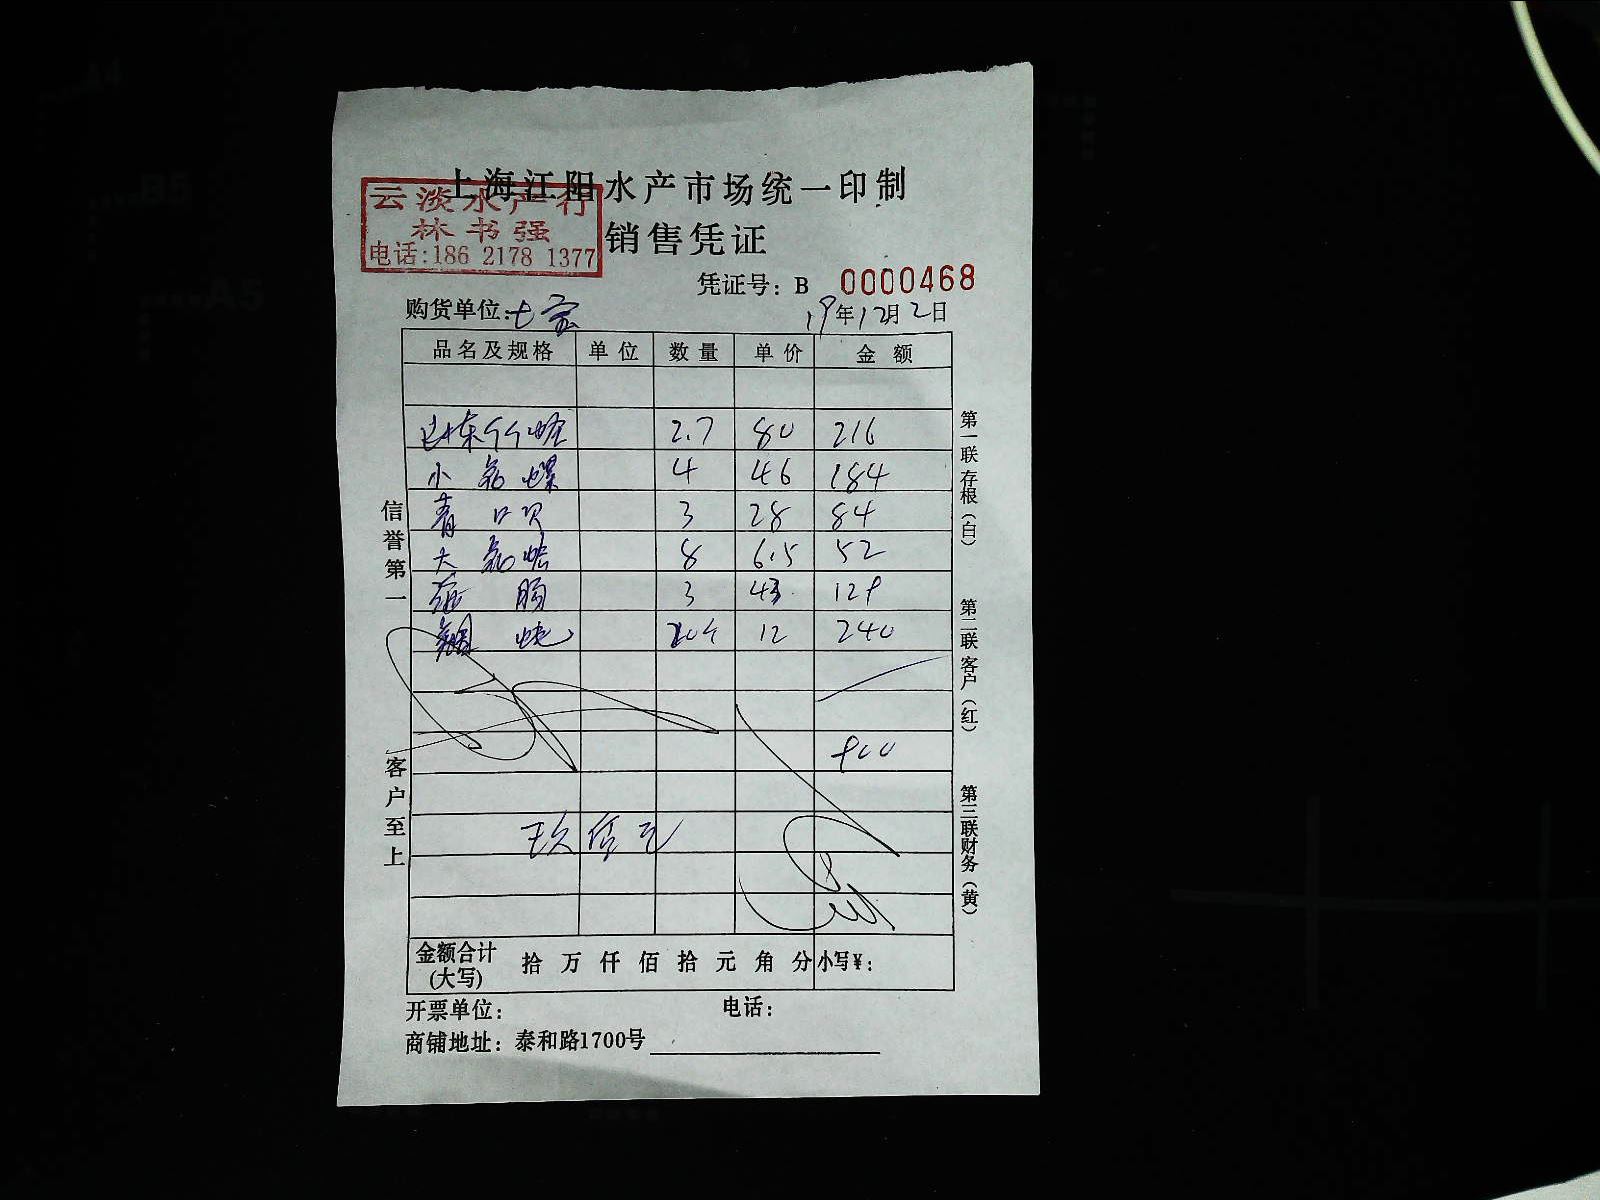 上海江阳水产市场统一印制
云淡水产行
林书强
电话:186 2178 1377
销售凭证
凭证号: B 0000468
购货单位:七宝 19年12月2日
品名及规格 单位 数量 单价 金额
2.7 80 216
小 螺 4 46 184
青口贝 3 28 84
大 8 6.5 52
海肠 3 43 129
12 240
900
玖佰元
金额合计(大写) 拾 万 仟 佰 拾 元 角 分 小写¥:
开票单位: 电话:
商铺地址: 泰和路1700号
信誉第一 客户至上
第一联存根(白)
第二联客户(红)
第三联财务(黄)